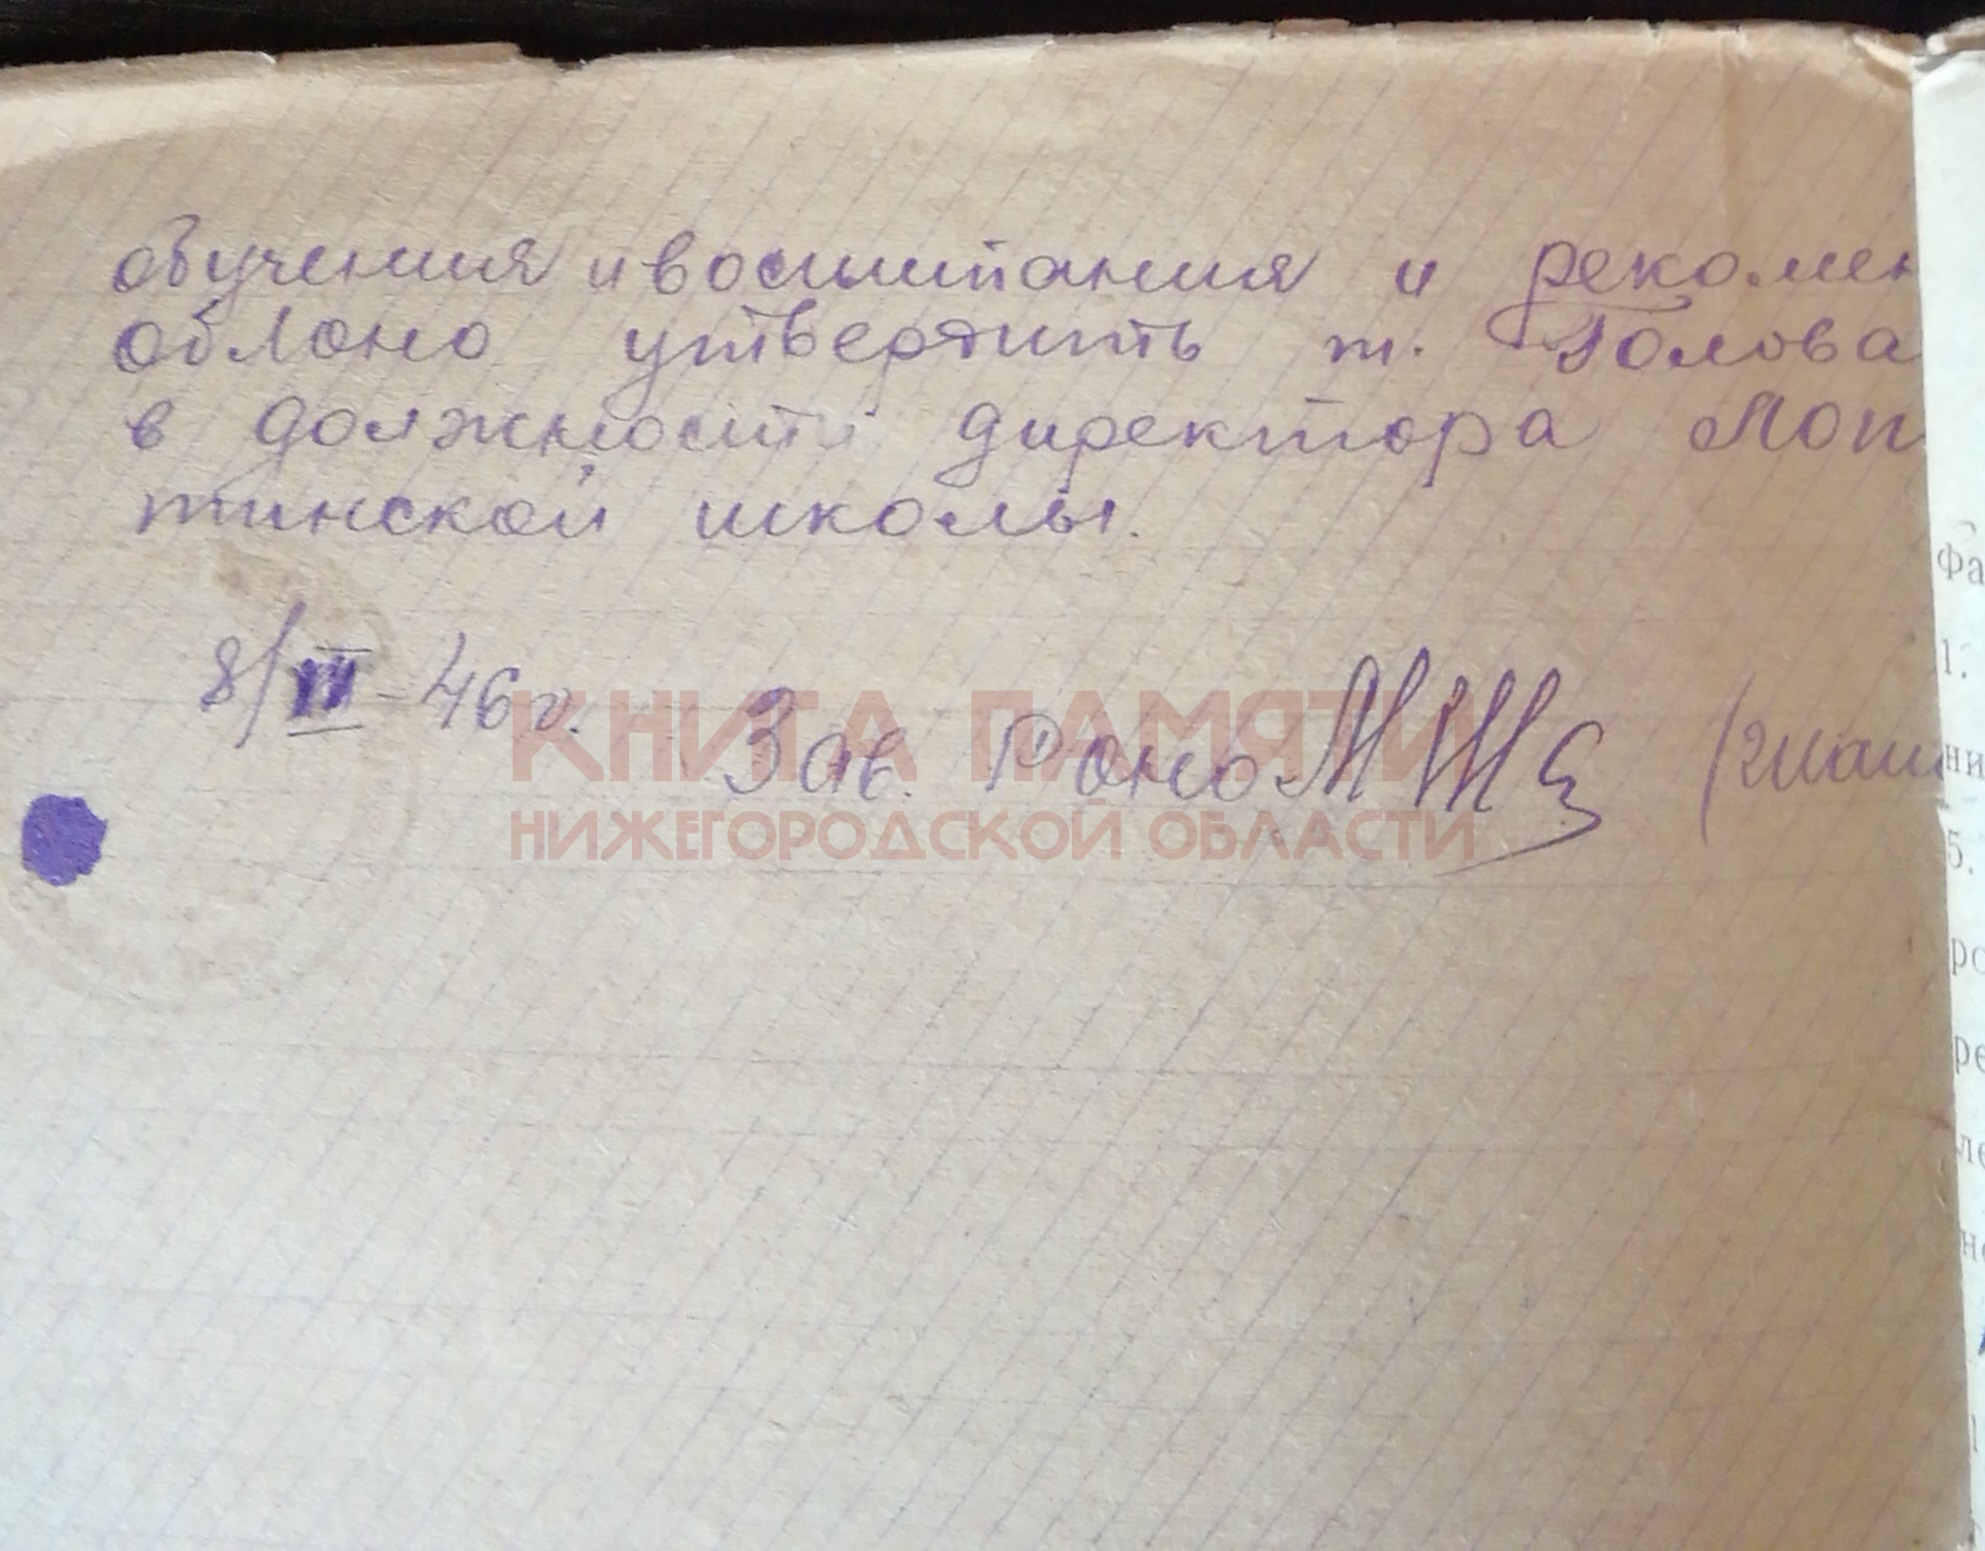 обучения и воспитания и рекомен
облоно утвердить т. Голова
в должности директора Лоп
тинской школы.
8/III-46 г.
Зав. Роно
КНИГА ПАМЯТИ
НИЖЕГОРОДСКОЙ ОБЛАСТИ
Фа
1.
ни
5.
ро
ре
ле
но